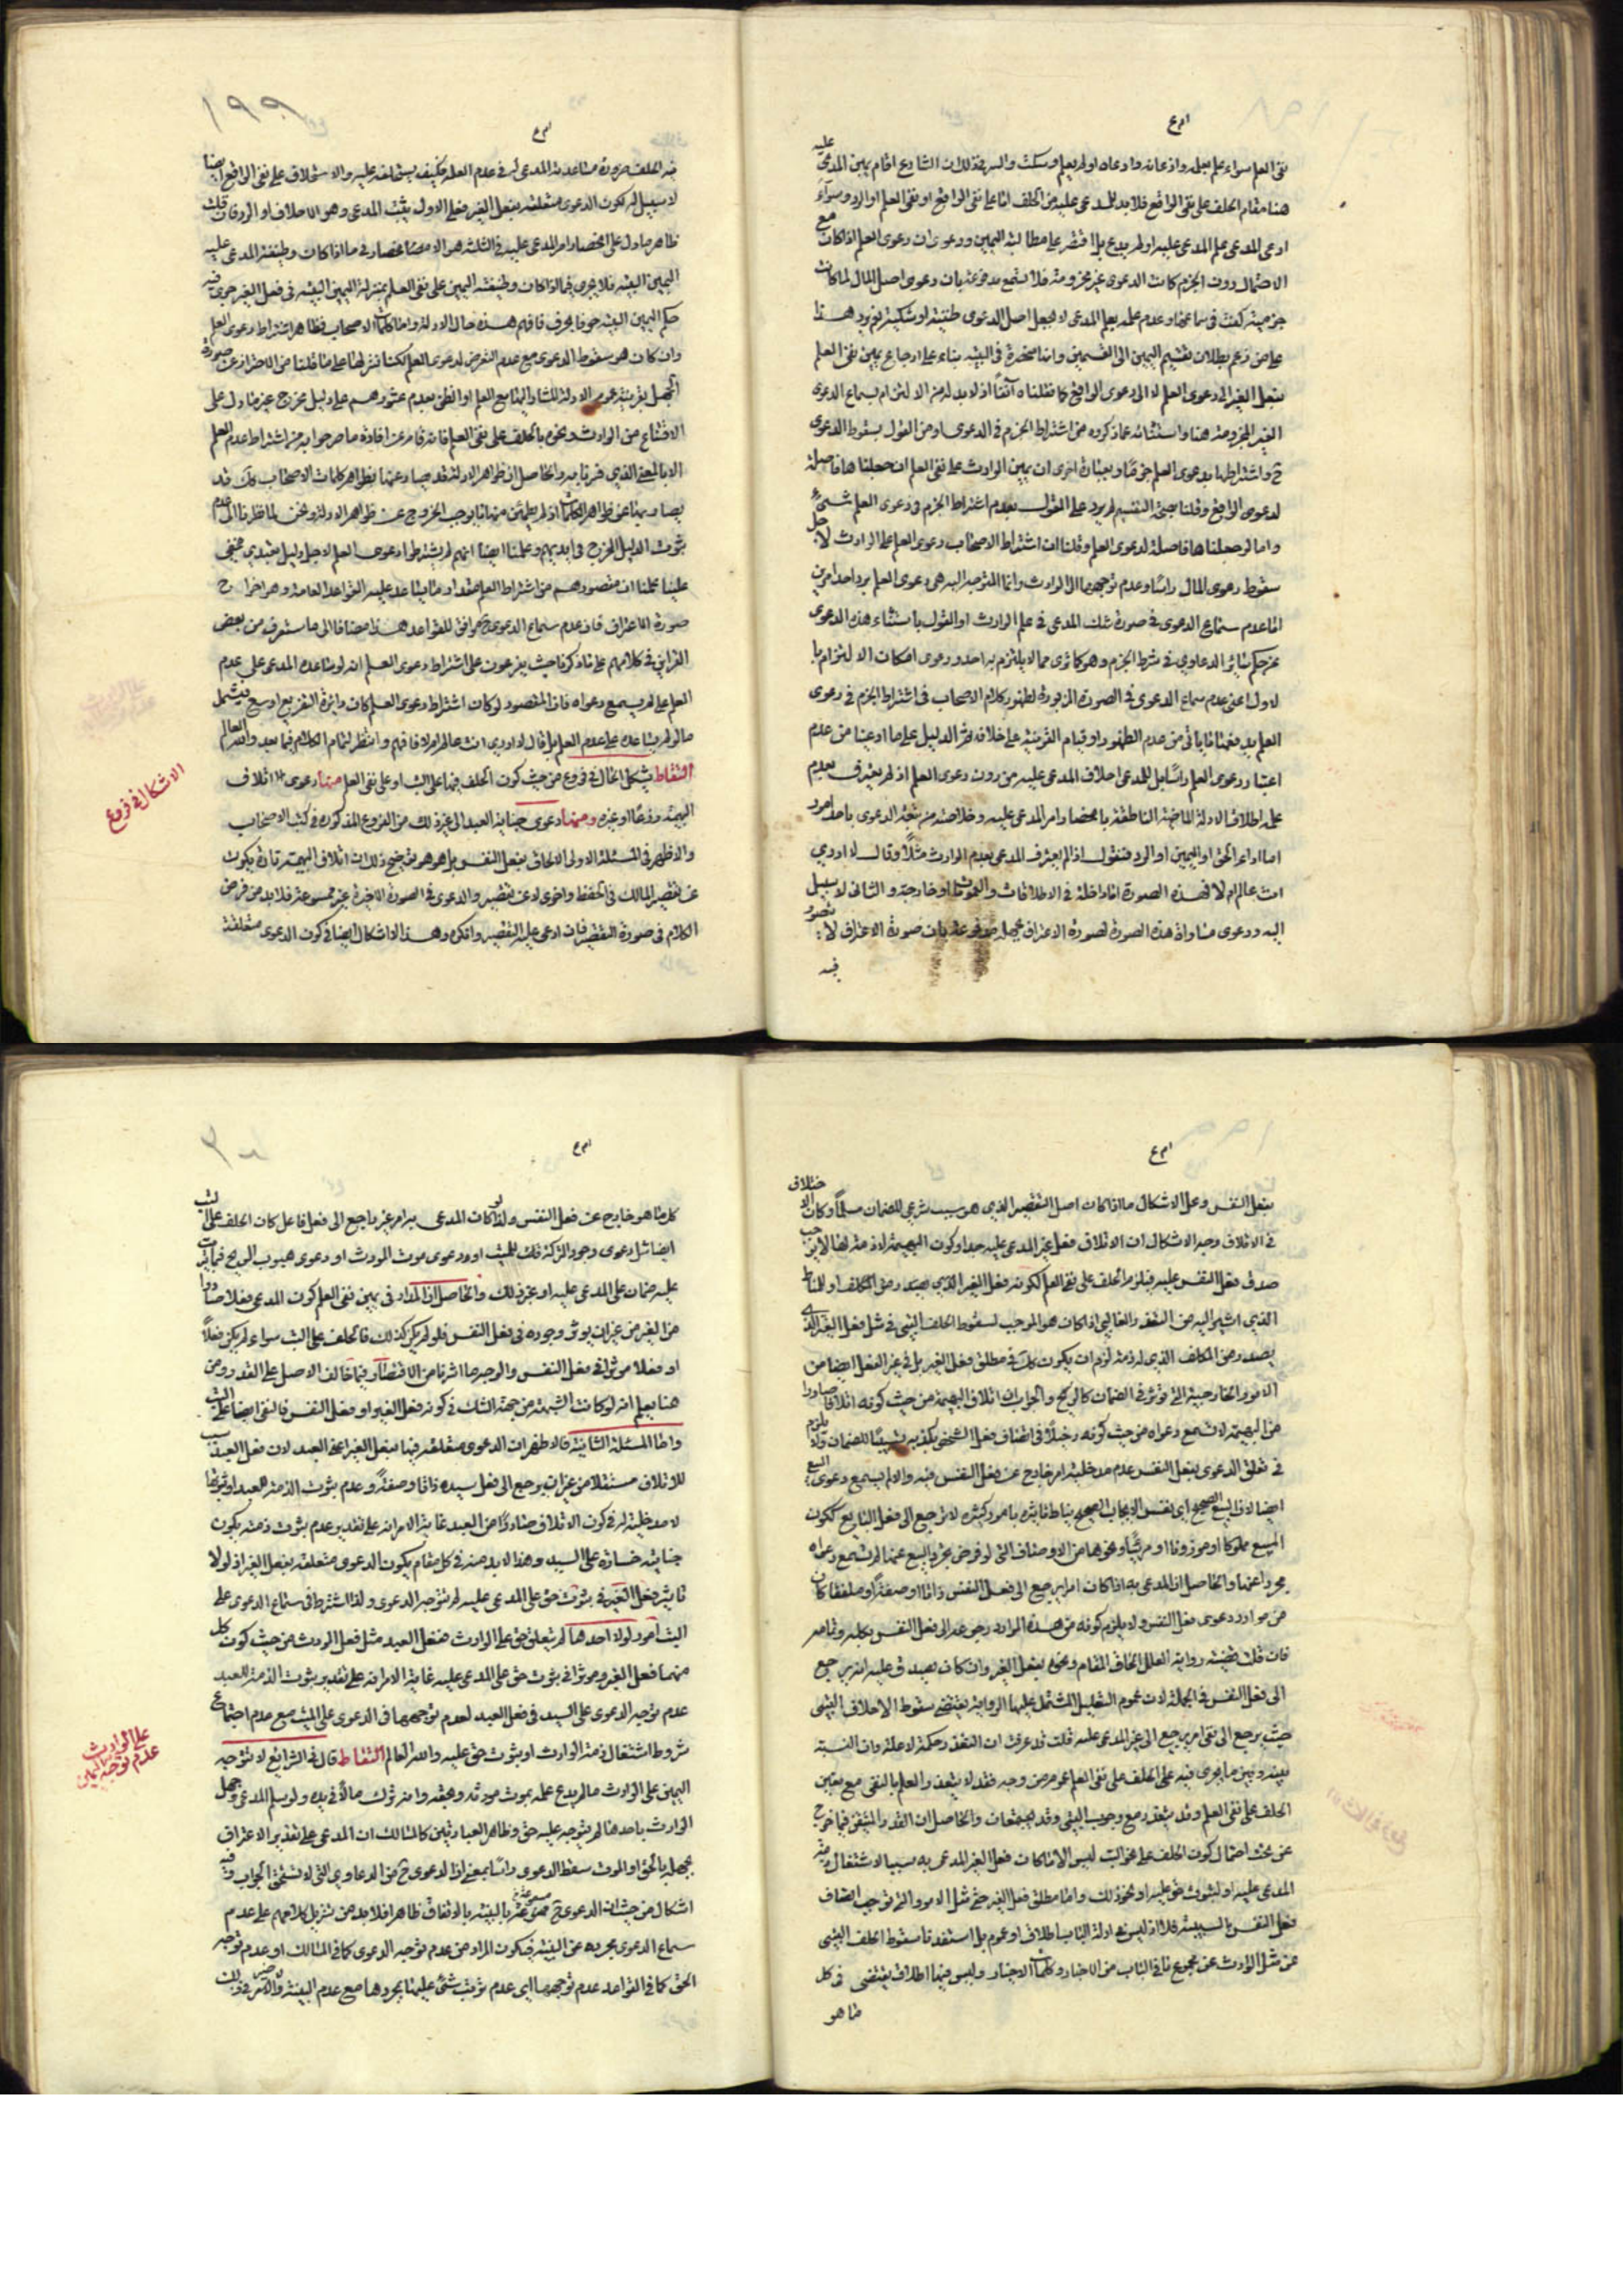 نفى العلم سواء علم بعلمه واذعانه وادعاه او لم يعلم وسكت والسر فى ذلك ان الشارع اقام يمين المدعى عليه
هنا مقام الحلف على نفى الواقع فلا بد للمدعى عليه من الحلف اما على نفى الواقع او نفى العلم او الرد وسواء
ادعى المدعى علم المدعى عليه او لم يدع بل اقتصر على مطالبة اليمين ودعوى ان دعوى العلم اذا كانت مع
الاحتمال دون الجزم كانت الدعوى غير مجزومة فلا تسمع مدفوعة بان دعوى اصل المال لما كانت
جزمية كفت فى سماعها وعدم علمه بعلم المدعى لا يجعل اصل الدعوى ظنية او شكية نعم يرد هذا
على من زعم بطلان تقسيم اليمين الى القسمين وانها منحصرة فى البتية بناء على ارجاع يمين نفى العلم
بفعل الغير الى دعوى العلم لا الى دعوى الواقع كما نقلناه آنفا اذ لا بد له من الالتزام بسماع الدعوى
الغير المجزومة هنا واستثنائه عما ذكروه من اشتراط الجزم فى الدعوى او من القول بسقوط الدعوى
ح واشتراطها بدعوى العلم جزما وبعبارة اخرى ان يمين الوارث على نفى العلم ان جعلناها فاصلة
لدعوى الواقع وقلنا بصحة التقسيم لم يرد على القول بعدم اشتراط الجزم فى دعوى العلم شىء
واما لو جعلناها فاصلة لدعوى العلم وقلنا ان اشتراط الاصحاب دعوى العلم على الوارث لاجل
سقوط دعوى المال راسا وعدم توجهها الى الوارث وانما المتوجه اليه هى دعوى العلم يرد احد امرين
اما عدم سماع الدعوى فى صورة شك المدعى فى علم الوارث او القول باستثناء هذه الدعوى
عن حكم سائر الدعاوى فى شرط الجزم وهو كما ترى مما لا يلتزم به احد ودعوى امكان الالتزام با
لاول اعنى عدم سماع الدعوى فى الصورة المزبورة لظهور كلام الاصحاب فى اشتراط الجزم فى دعوى
العلم يدفعها ما ياتى من عدم الظهور او قيام القرينة على خلافه ثم الدليل على ما ادعينا من عدم
اعتبار دعوى العلم راسا بل للمدعى احلاف المدعى عليه من دون دعوى العلم اذ لم يعترف بعدم
علمه اطلاق الادلة الماضية الناطقة بانحصار امر المدعى عليه وخلاصه من تبعة الدعوى باحد امور
اما اداء الحق او اليمين او الرد فنقول اذا لم يعترف المدعى بعدم الوارث مثلا وقال لا ادرى
انت عالم ام لا فهذه الصورة اما داخلة فى الاطلاقات والعمومات او خارجة والثانى لا سبيل
اليه ودعوى مساواة هذه الصورة لصورة الاعتراف بجهله مدفوعة بان صورة الاعتراف لا يتصور
فيه
١٩٩
فيه الحلف ضرورة مساعدة المدعى له فى عدم العلم فكيف يستحلفه عليه والاستحلاف على نفى الواقع ايضا
لا سبيل له لكون الدعوى متعلقة بفعل الغير فعلى الاول يثبت المدعى وهو الاحلاف او الرد فان قلت
ظاهر ما دل على انحصار امر المدعى عليه فى الثلثة هو الانحصار فى ما اذا كانت وظيفة المدعى عليه
اليمين البتية فلا يجرى فيما اذا كان وظيفته اليمين على نفى العلم بمنزلة اليمين البتية فى فعل الغير جرى فيه
حكم اليمين البتية حرفا بحرف فافهم هذه حال الادلة واما كلمات الاصحاب فظاهر اشتراط دعوى العلم
وان كان هو سقوط الدعوى مع عدم التعرض لدعوى العلم لكنا ننزلها على ما قلنا من الاحتراز عن صورة
الجهل بقرينة عموم الادلة
الاقتناع من الوارث ونحوه بالحلف على نفى العلم فانه قاصر عن افادة ما صرحوا به من اشتراط عدم العلم
الا بالمعنى الذى فسرنا به والحاصل ان ظواهر الادلة قد يصادعنها بظواهر كلمات الاصحاب ولك قد
بثبوت الدليل المخرج فى ايديهم وعلمنا ايضا انهم لم يشترطوا دعوى العلم لاجل دليل تعبدى مخفى
علينا علمنا ان مقصودهم من اشتراط العلم مقدار ما يساعد عليه القواعد العامة وهو اخراج
صورة الاعتراف فان عدم سماع الدعوى ح موافق للقواعد هذا مضافا الى ما ستعرف من بعض
القراين فى كلامهم على ما ذكرنا حيث يفرعون على اشتراط دعوى العلم انه لو ساعده المدعى على عدم
العلم لم يسمع دعواه فان المقصود لو كان اشتراط دعوى العلم كان دائرة التفريع اوسع فيشمل
ما لو لم يساعده على عدم العلم بل قال لا ادرى انت عالم ام لا فافهم وانتظر لتمام الكلام فيما بعد والله العالم
التقاط يشكل الحال فى فروع من حيث كون الحلف فيها على البت او على نفى العلم منها دعوى اتلاف
البهيمة زرعا او غيره ومنها دعوى جناية العبد الى غير ذلك من الفروع المذكورة فى كتب الاصحاب
والاظهر فى المسئلة الاولى الالحاق بفعل النفس بل هو هو توضيح ذلك ان اتلاف البهيمة تارة يكون
عن تقصير المالك فى الحفظ واخرى لا عن تقصير والدعوى فى الصورة الاخيرة غير مسموعة فلا بد من فرض
الكلام فى صورة التقصير فان ادعى عليه التقصير وانكره وهذا لا اشكال ايضا فى كون الدعوى متعلقة
الاشكال فى فروع
بفعل النفس وعلى الاشكال ما اذا كان اصل التقصير الذى هو سبب شرعى للضمان مسلما وكان الاختلاف
فى الاتلاف وجه الاشكال ان الاتلاف فعل غير المدعى عليه
صدق فعل النفس عليه فيلزم الحلف على نفى العلم لكونه فعل الغير الذى يصدر من المكلف
يصدر من المكلف الذى له ذمة لزم ان يكون كك فى مطلق فعل الغير بل فى غير الفعل ايضا من
الامور الخارجية التى تؤثر فى الضمان كالريح والجواب ان اتلاف البهيمة من حيث كونه اتلافا صادرا
من البهيمة لا تسمع دعواه من حيث كونه دخيلا فى اتصاف فعل الشخص
فى تعلق الدعوى بفعل النفس عدم مدخلية امر خارج عن فعل النفس فيه والا لم يسمع دعوى البيع
ايضا لان البيع الصحيح اى نفس الايجاب الصحيح يناط تاثيره بامور كثيرة لا ترجع الى فعل البايع ككون
المبيع مملوكا او موزونا او مرئيا ونحوها من الاوصاف التى لو فرض تجريد البيع عنها لم تسمع دعواه
مجردا عنها والحاصل ان المدعى به اذا كان امرا يرجع الى فعل النفس ذاتا او صفة او ملفقا كان
من موارد دعوى فعل النفس ولا يلزم كونه من هذه الموارد رجوعه الى فعل النفس بكله وتمامه
فان قلت قضية رواية العلل الحاق المقام ونحوه بفعل الغير وان كان يصدق عليه انه يرجع
الى فعل النفس فى الجملة لان عموم التعليل المشتمل عليها الرواية يقتضى سقوط الاحلاف البتى
حيث يرجع الى نفى امر يرجع الى غير المدعى عليه قلت قد عرفت ان التعذر حكمة لا علة وان النسبة
بينه وبين ما يجرى فيه على الحلف على نفى العلم عموم من وجه فقد لا يتعذر العلم بالنفى مع تعين
الحلف على نفى العلم وقد يتعذر مع وجوب البتى وقد يجتمعان والحاصل ان القدر المتيقن فيما خرج
عن تحت احتمال كون الحلف على نحو البت ليس الا ما كان فعل الغير المدعى به سببا لاشتغال ذمة
المدعى عليه او لثبوت حق عليه او نحو ذلك واما مطلق فعل الغير حتى مثل الامور التى توجب اتصاف
فعل النفس بالسببية فلا اذ ليس فى ادلة الباب اطلاق او عموم بل استفدنا سقوط الحلف البتى
عن مثل الوارث عن مجموع ما فى الباب من الاخبار وكلمات الاخيار وليس فيها اطلاق يقتضى فى كل
ما هو
كل ما هو خارج عن فعل النفس ولذا لو كان المدعى به امر غير راجع الى فعل فاعل كان الحلف على البت
ايضا مثل دعوى وجود التركة فى ملك الميت او دعوى موت المورث او دعوى هبوب الريح
عليه ضمان على المدعى عليه او نحو ذلك والحاصل ان المدار فى يمين نفى العلم كون المدعى فعلا صادرا
من الغير من غير ان يؤثر وجوده فى فعل النفس فلو لم يكن كذلك فالحلف على البت سواء لم يكن فعلا
او فعلا مؤثرا فى فعل النفس والوجه ما اشرنا من الاقتصار فيما خالف الاصل على القدر ومن
هنا يعلم انه لو كانت الشبهة من جهة الشك فى كونه فعل الغير او فعل النفس فالنفى ايضا على البت
واما المسئلة الثانية فالاظهر ان الدعوى متعلقة فيها بفعل الغير اعنى العبد لان فعل العبد سبب
للاتلاف مستقلا من غير ان يرجع الى فعل سيده ذاتا وصفة وعدم ثبوت الذمة للعبد او ثبوتها
لا مدخلية له فى كون الاتلاف صادرا من العبد غاية الامر انه على تقدير عدم ثبوت ذمته يكون
جنايته خسارة على السيد وهذا لا بد منه فى كل مقام يكون الدعوى متعلقة بفعل الغير اذ لولا
تاثير فعل الغير فى ثبوت حق على المدعى عليه لم تتوجه الدعوى ولذا اشترط فى سماع الدعوى على
الميت امور لولا احدها لم يتعلق حق على الوارث ففعل العبد مثل فعل المورث من حيث كون كل
منهما فعل الغير ومؤثرا فى ثبوت حق على المدعى عليه غاية الامر انه على تقدير ثبوت الذمة للعبد
عدم توجه الدعوى على السيد فى فعل العبد لعدم توجهها فى الدعوى على الميت مع عدم اجتماع
شروط اشتغال ذمة الوارث او ثبوت حق عليه والله العالم التقاط قال فى الشرايع لا تتوجه
اليمين على الوارث ما لم يدع علمه بموت مورثه وبحقه وانه ترك مالا فى يده ولو سلم المدعى جهل
الوارث باحدها لم يتوجه عليه حق وظاهر العبارتين كالمسالك ان المدعى على تقدير الاعتراف
بجهله بالحق او الموت سقط الدعوى راسا بمعنى ان الدعوى ح من الدعاوى التى لا تستحق الجواب وفيه
اشكال من حيث ان الدعوى ح مسموعة بالبينة بالاتفاق ظاهرا فلا بد من تنزيل كلامهم على عدم
سماع الدعوى مجردة عن البينة فيكون المراد من عدم توجه الدعوى كما فى المسالك او عدم توجه
الحق كما فى القواعد عدم توجهها اى عدم ترتب شىء عليها بمجردها مع عدم البينة
على الوارث
عدم توجه اليمين